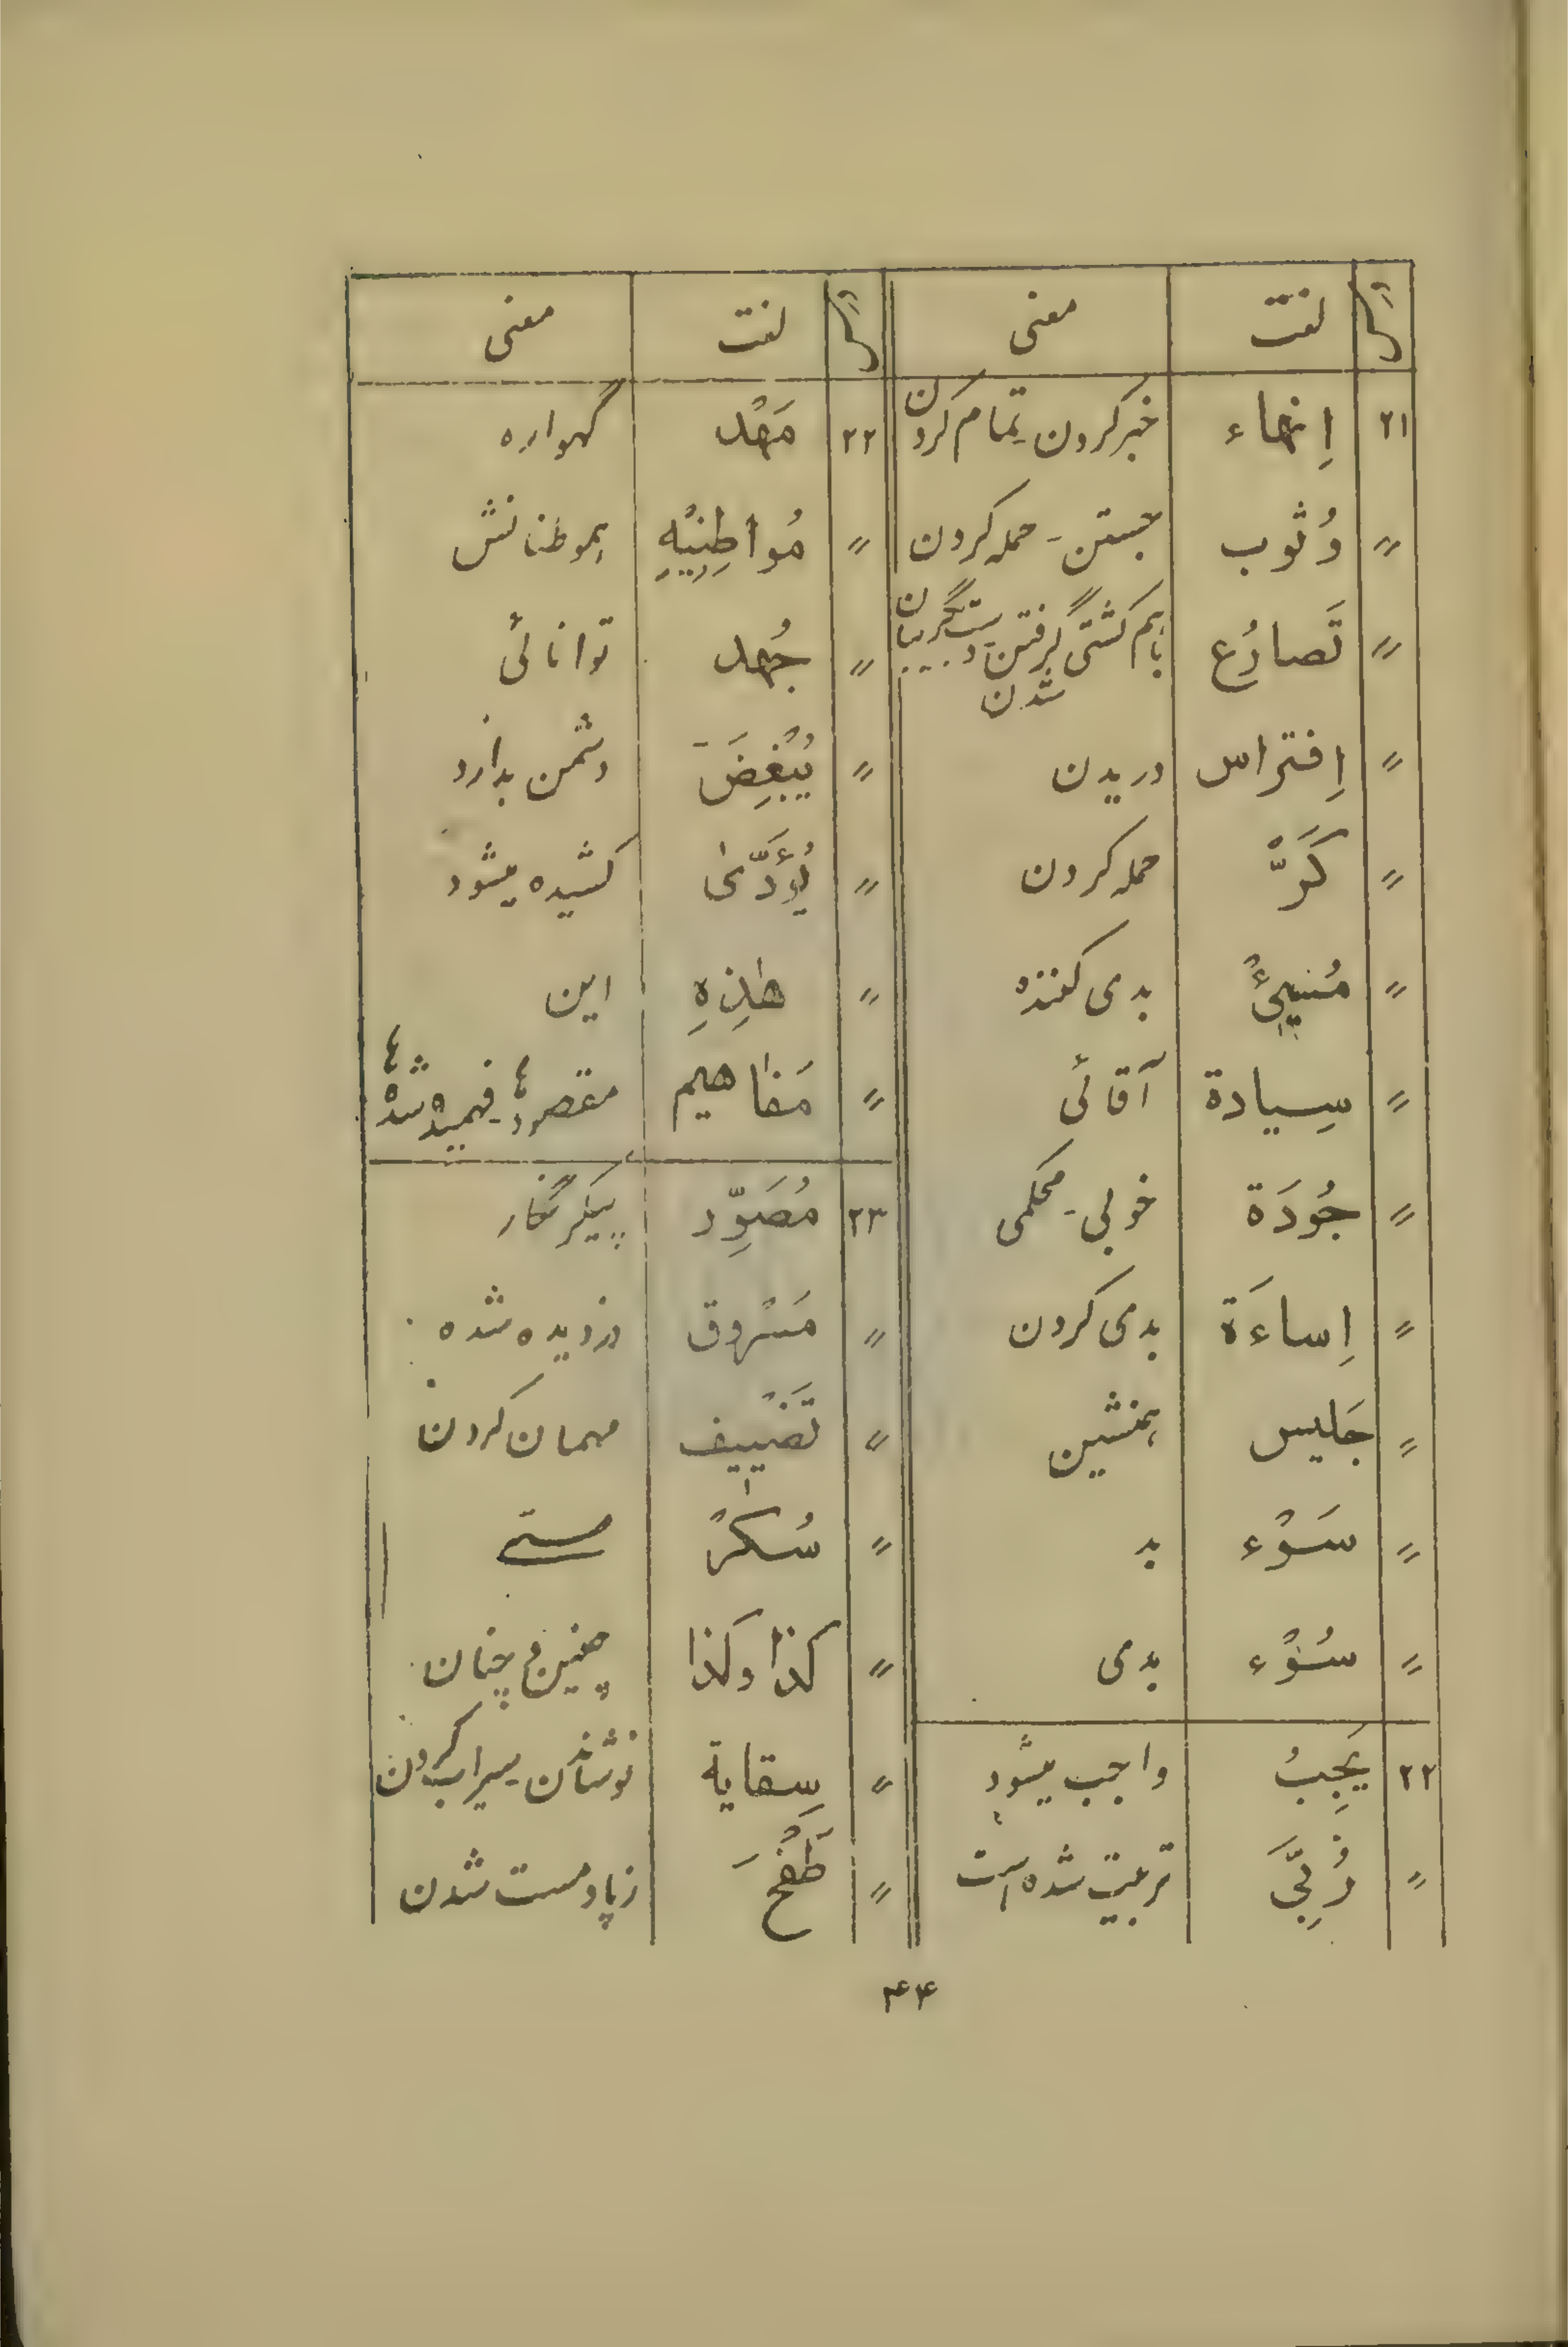 لغت معنی
۲۱ اِنهاء خبر کردن تمام کردن
〃 وُثوب جستن - حمله کردن
〃 تَصارُع باهم کشتی گرفتن دست گریبان شدن
〃 اِفتراس دریدن
〃 کَرّ حمله کردن
〃 مُسِیئ بدی کننده
〃 سِیادة آقائی
〃 جُودَة خوبی - محکمی
〃 اِساءَة بدی کردن
〃 جَلیس همنشین
〃 سَوْء بد
〃 سُوْء بدی
۲۲ یَجِبُ واجب میشود
〃 رُبِّیَ تربیت شده است
لغت معنی
۲۲ مَهْد گهواره
〃 مُواطِنِیْهِ هموطنانش
〃 جُهْد توانائی
〃 یُبْغِضَ دشمن بدارد
〃 یُؤَدّیٰ کشیده میشود
〃 هٰذِهِ این
〃 مَفاهیم مقصودها - فهمیده شده‌ها
۲۳ مُصَوِّر پیکر نگار
〃 مَسْروق دزدیده شده
〃 تَضْییف مهمان کردن
〃 سُکْر مستی
〃 کذا وکذا چنین و چنان
〃 سِقایة نوشاندن - سیراب کردن
〃 طَفْحَ زیاد مست شدن
۴۴